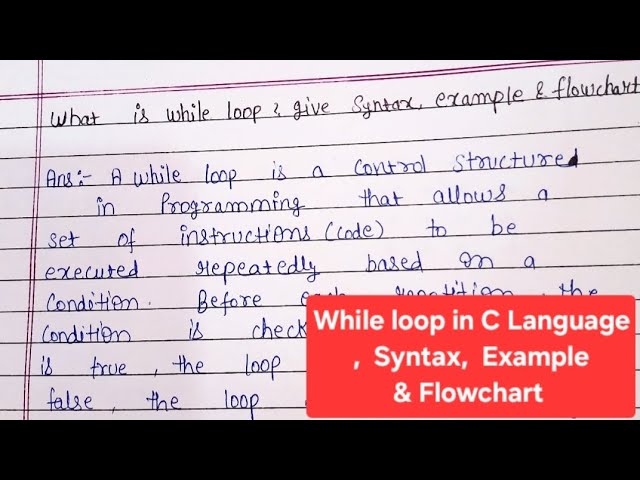 What is while loop ? give Syntax, example & flowchart
Ans:- A while loop is a Control Structured
in Programming that allows a
set of instructions (code) to be
executed repeatedly based on a
Condition. Before each repetition, the
Condition is check
is true, the loop
false, the loop
While loop in C Language
, Syntax, Example
& Flowchart